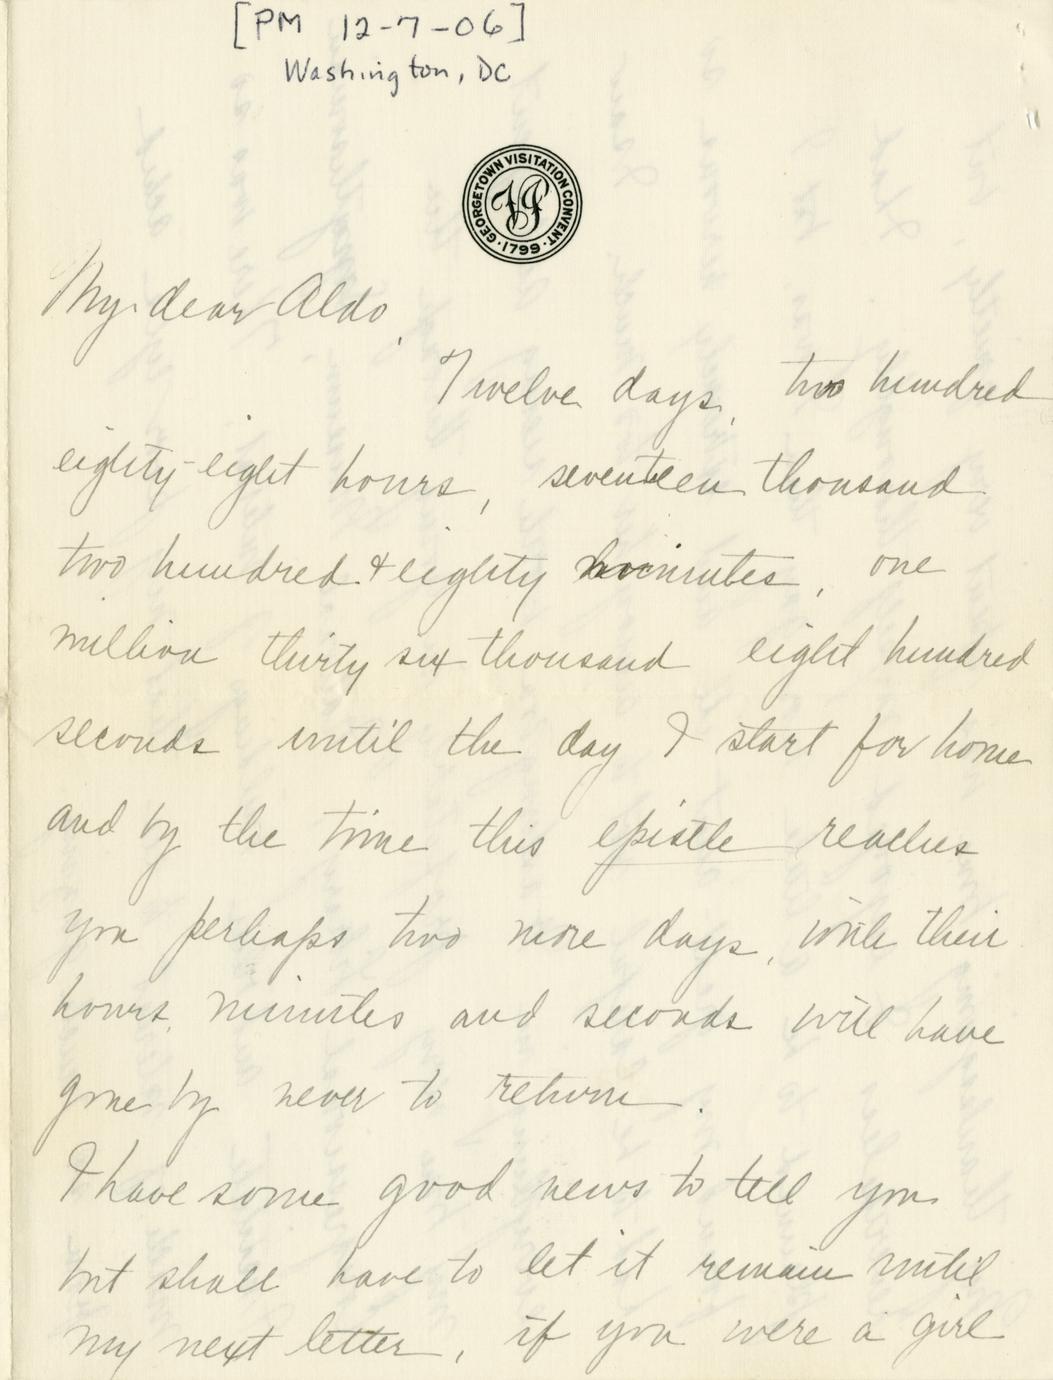 [PM 12-7-06]
Washington, DC
GEORGETOWN VISITATION CONVENT
· 1799 ·
My dear Aldo,
Twelve days, two hundred
eighty-eight hours, seventeen thousand
two hundred & eighty minutes, one
million thirty six thousand eight hundred
seconds until the day I start for home
and by the time this epistle reaches
you perhaps two more days, with their
hours, minutes and seconds will have
gone by never to return.
I have some good news to tell you
but shall have to let it remain until
my next letter, if you were a girl